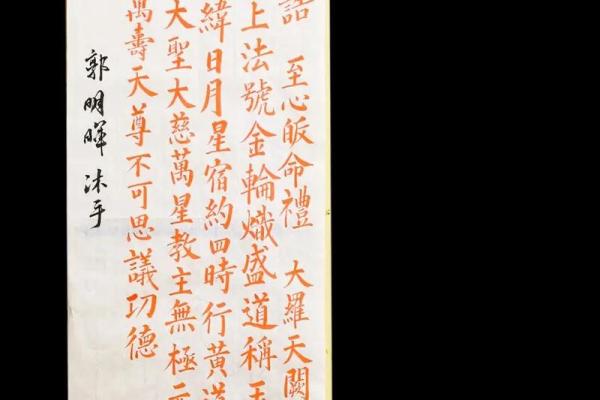 誥 至心皈命禮 大羅天闕
上法號金輪熾盛道稱玉
緯日月星宿約四時行黃道
大聖大慈萬星教主無極元
萬壽天尊不可思議功德
郭明暉 沐手